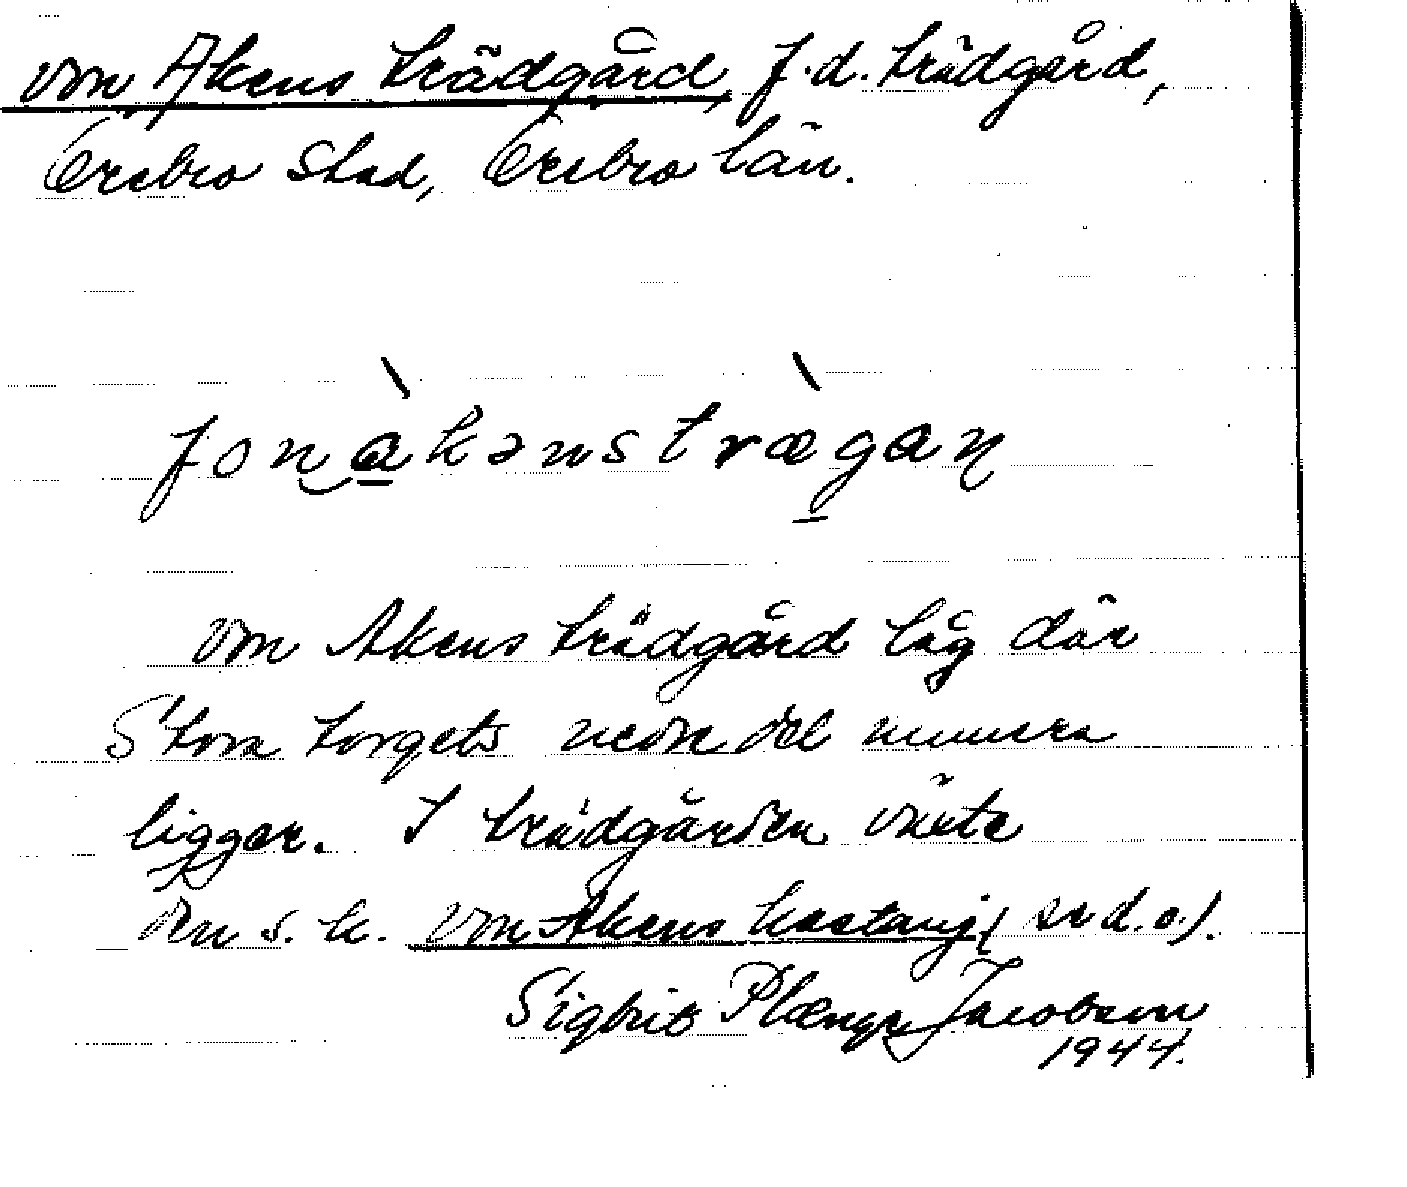 von Akens trädgård, f.d. trädgård,
Örebro stad, Örebro län.
fonakənstrægaɳ
von Akens trädgård låg där
Stora torgets nedre del numera
ligger. I trädgården växte
den s.k. von Akens kastanj (se d.o.).
Sigbrit Plænge Jacobson
1944.